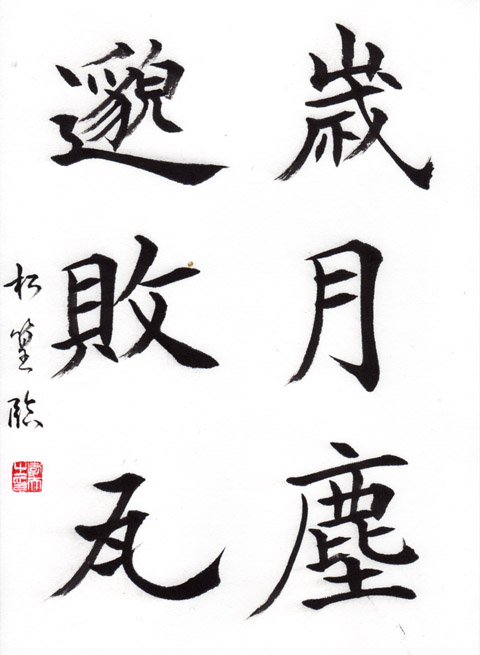 歳月塵
邈敗瓦
松篁臨